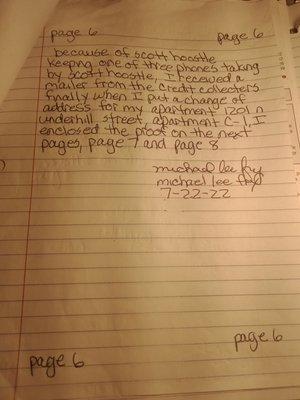 page 6 page 6
because of scott hoostle
keeping one of three phones taking
by scott hoostle, I received a
mailer from the credit collecters
finally when I put a change of
address for my apartment 1201 n
underhill street, apartment C-1, I
enclosed the proof on the next
pages, page 7 and page 8
michael lee
michael lee
7-22-22
page 6
page 6